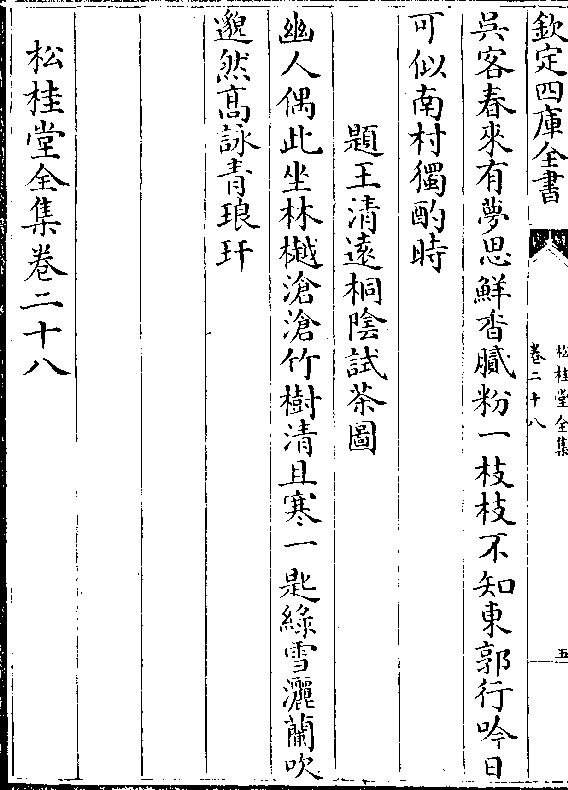 欽定四庫全書
松桂堂全集
卷二十八
五
吳客春來有夢思鮮香膩粉一枝枝不知東郭行吟日
可似南村獨酌時
題王清遠桐陰試茶圖
幽人偶此坐林樾滄滄竹樹清且寒一匙綠雪灑蘭吹
邈然髙詠青琅玕
松桂堂全集卷二十八